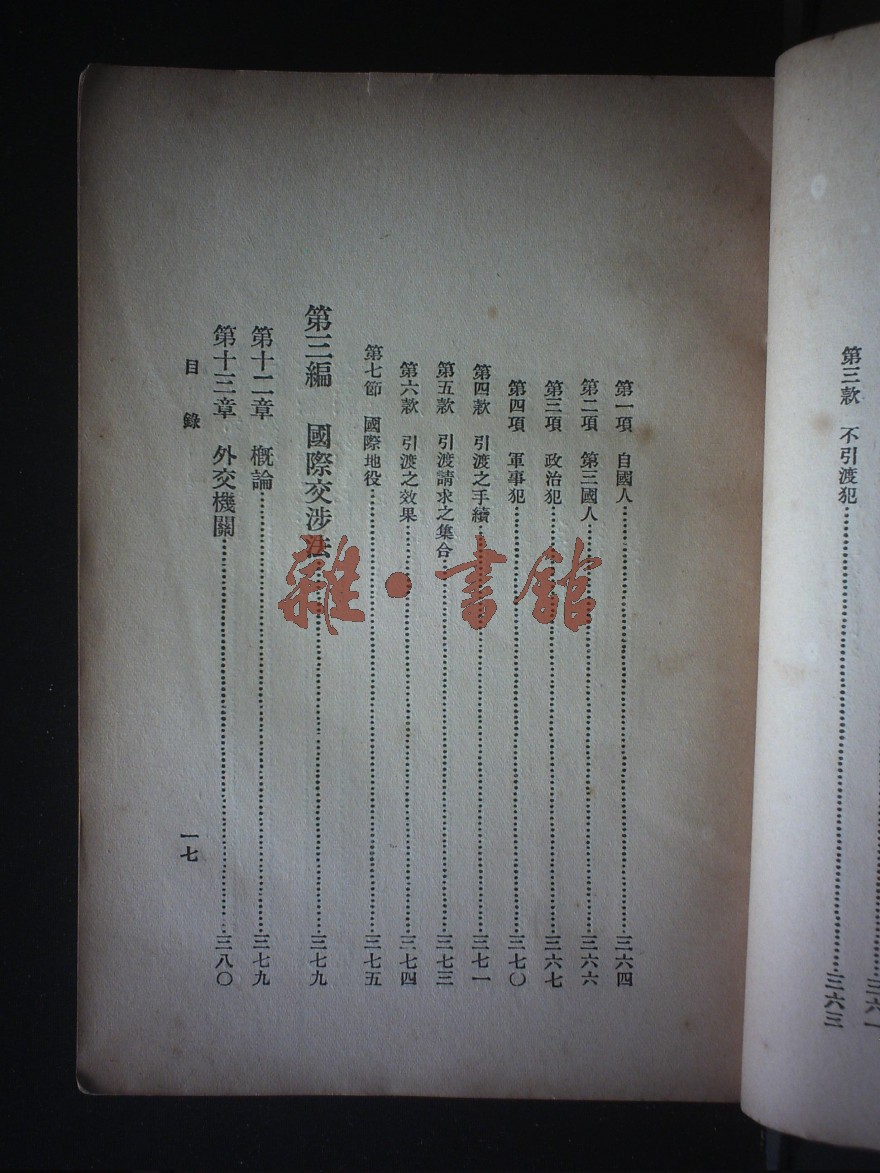 第三款　不引渡犯……三六三
第一項　自國人……三六四
第二項　第三國人……三六六
第三項　政治犯……三六七
第四項　軍事犯……三七〇
第四款　引渡之手續……三七一
第五款　引渡請求之集合……三七三
第六款　引渡之效果……三七四
第七節　國際地役……三七五
第三編　國際交涉法……三七九
第十二章　概論……三七九
第十三章　外交機關……三八〇
目錄
一七
雜·書館